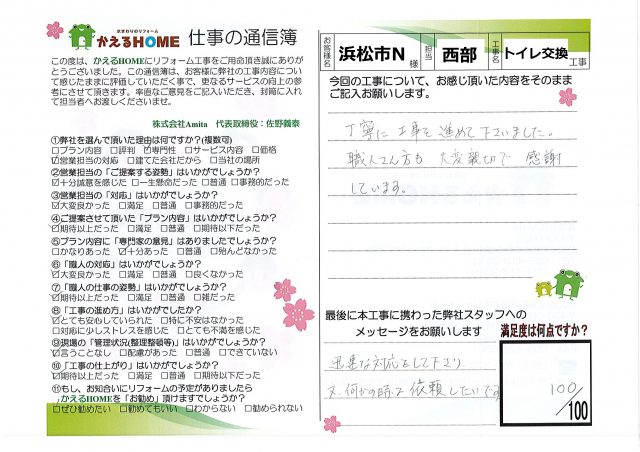 水まわりのリフォーム
かえるHOME 仕事の通信簿
この度は、かえるHOMEにリフォーム工事をご用命頂き誠にありが
とうございました。この通信簿は、お客様に弊社の工事内容につい
て感じたままに評価していただく事で、更なるサービスの向上の参
考にさせて頂きます。率直なご意見をご記入いただき、封筒に入れ
て担当者へお渡しくださいませ。
株式会社Amita 代表取締役:佐野義泰
①弊社を選んで頂いた理由は何ですか?(複数可)
□プラン内容 □評判 ☑専門性 □サービス内容 □価格
☑営業担当の対応 □建てた会社だから □当社の場所
②営業担当の「ご提案する姿勢」はいかがでしょうか?
☑十分誠意を感じた □一生懸命だった □普通 □事務的だった
③営業担当の「対応」はいかがでしょうか?
☑大変良かった □満足 □普通 □事務的だった
④ご提案させて頂いた「プラン内容」はいかがでしょうか?
☑期待以上だった □満足 □普通 □期待以下だった
⑤プラン内容に「専門家の意見」はありましたでしょうか?
□かなりあった ☑十分あった □普通 □殆んどなかった
⑥「職人の対応」はいかがでしょうか?
☑大変良かった □満足 □普通 □良くなかった
⑦「職人の仕事の姿勢」はいかがでしょうか?
☑期待以上だった □満足 □普通 □雑だった
⑧「工事の進め方」はいかがでしたか?
☑とても安心していられた □特に不安はなかった
□対応に少しストレスを感じた □とても不満を感じた
⑨現場の「管理状況(整理整頓等)」はいかがでしょうか?
☑言うことなし □配慮があった □普通 □できていない
⑩「工事の仕上がり」はいかがでしょうか?
☑期待以上だった □満足 □普通 □期待以下だった
⑪もし、お知合いにリフォームの予定がありましたら
かえるHOMEを「お勧め」頂けますでしょうか?
□ぜひ勧めたい □勧めてもいい □わからない □勧められない
お客様名 浜松市N 様 担当 西部 工事名 トイレ交換 工事
今回の工事について、お感じ頂いた内容をそのまま
ご記入お願いします。
丁寧に工事を進めて下さいました。
職人さん方も大変親切で感謝
しています。
最後に本工事に携わった弊社スタッフへの
メッセージをお願いします
迅速な対応をして下さり
又、何かの時は依頼したいです
満足度は何点ですか?
100
/100